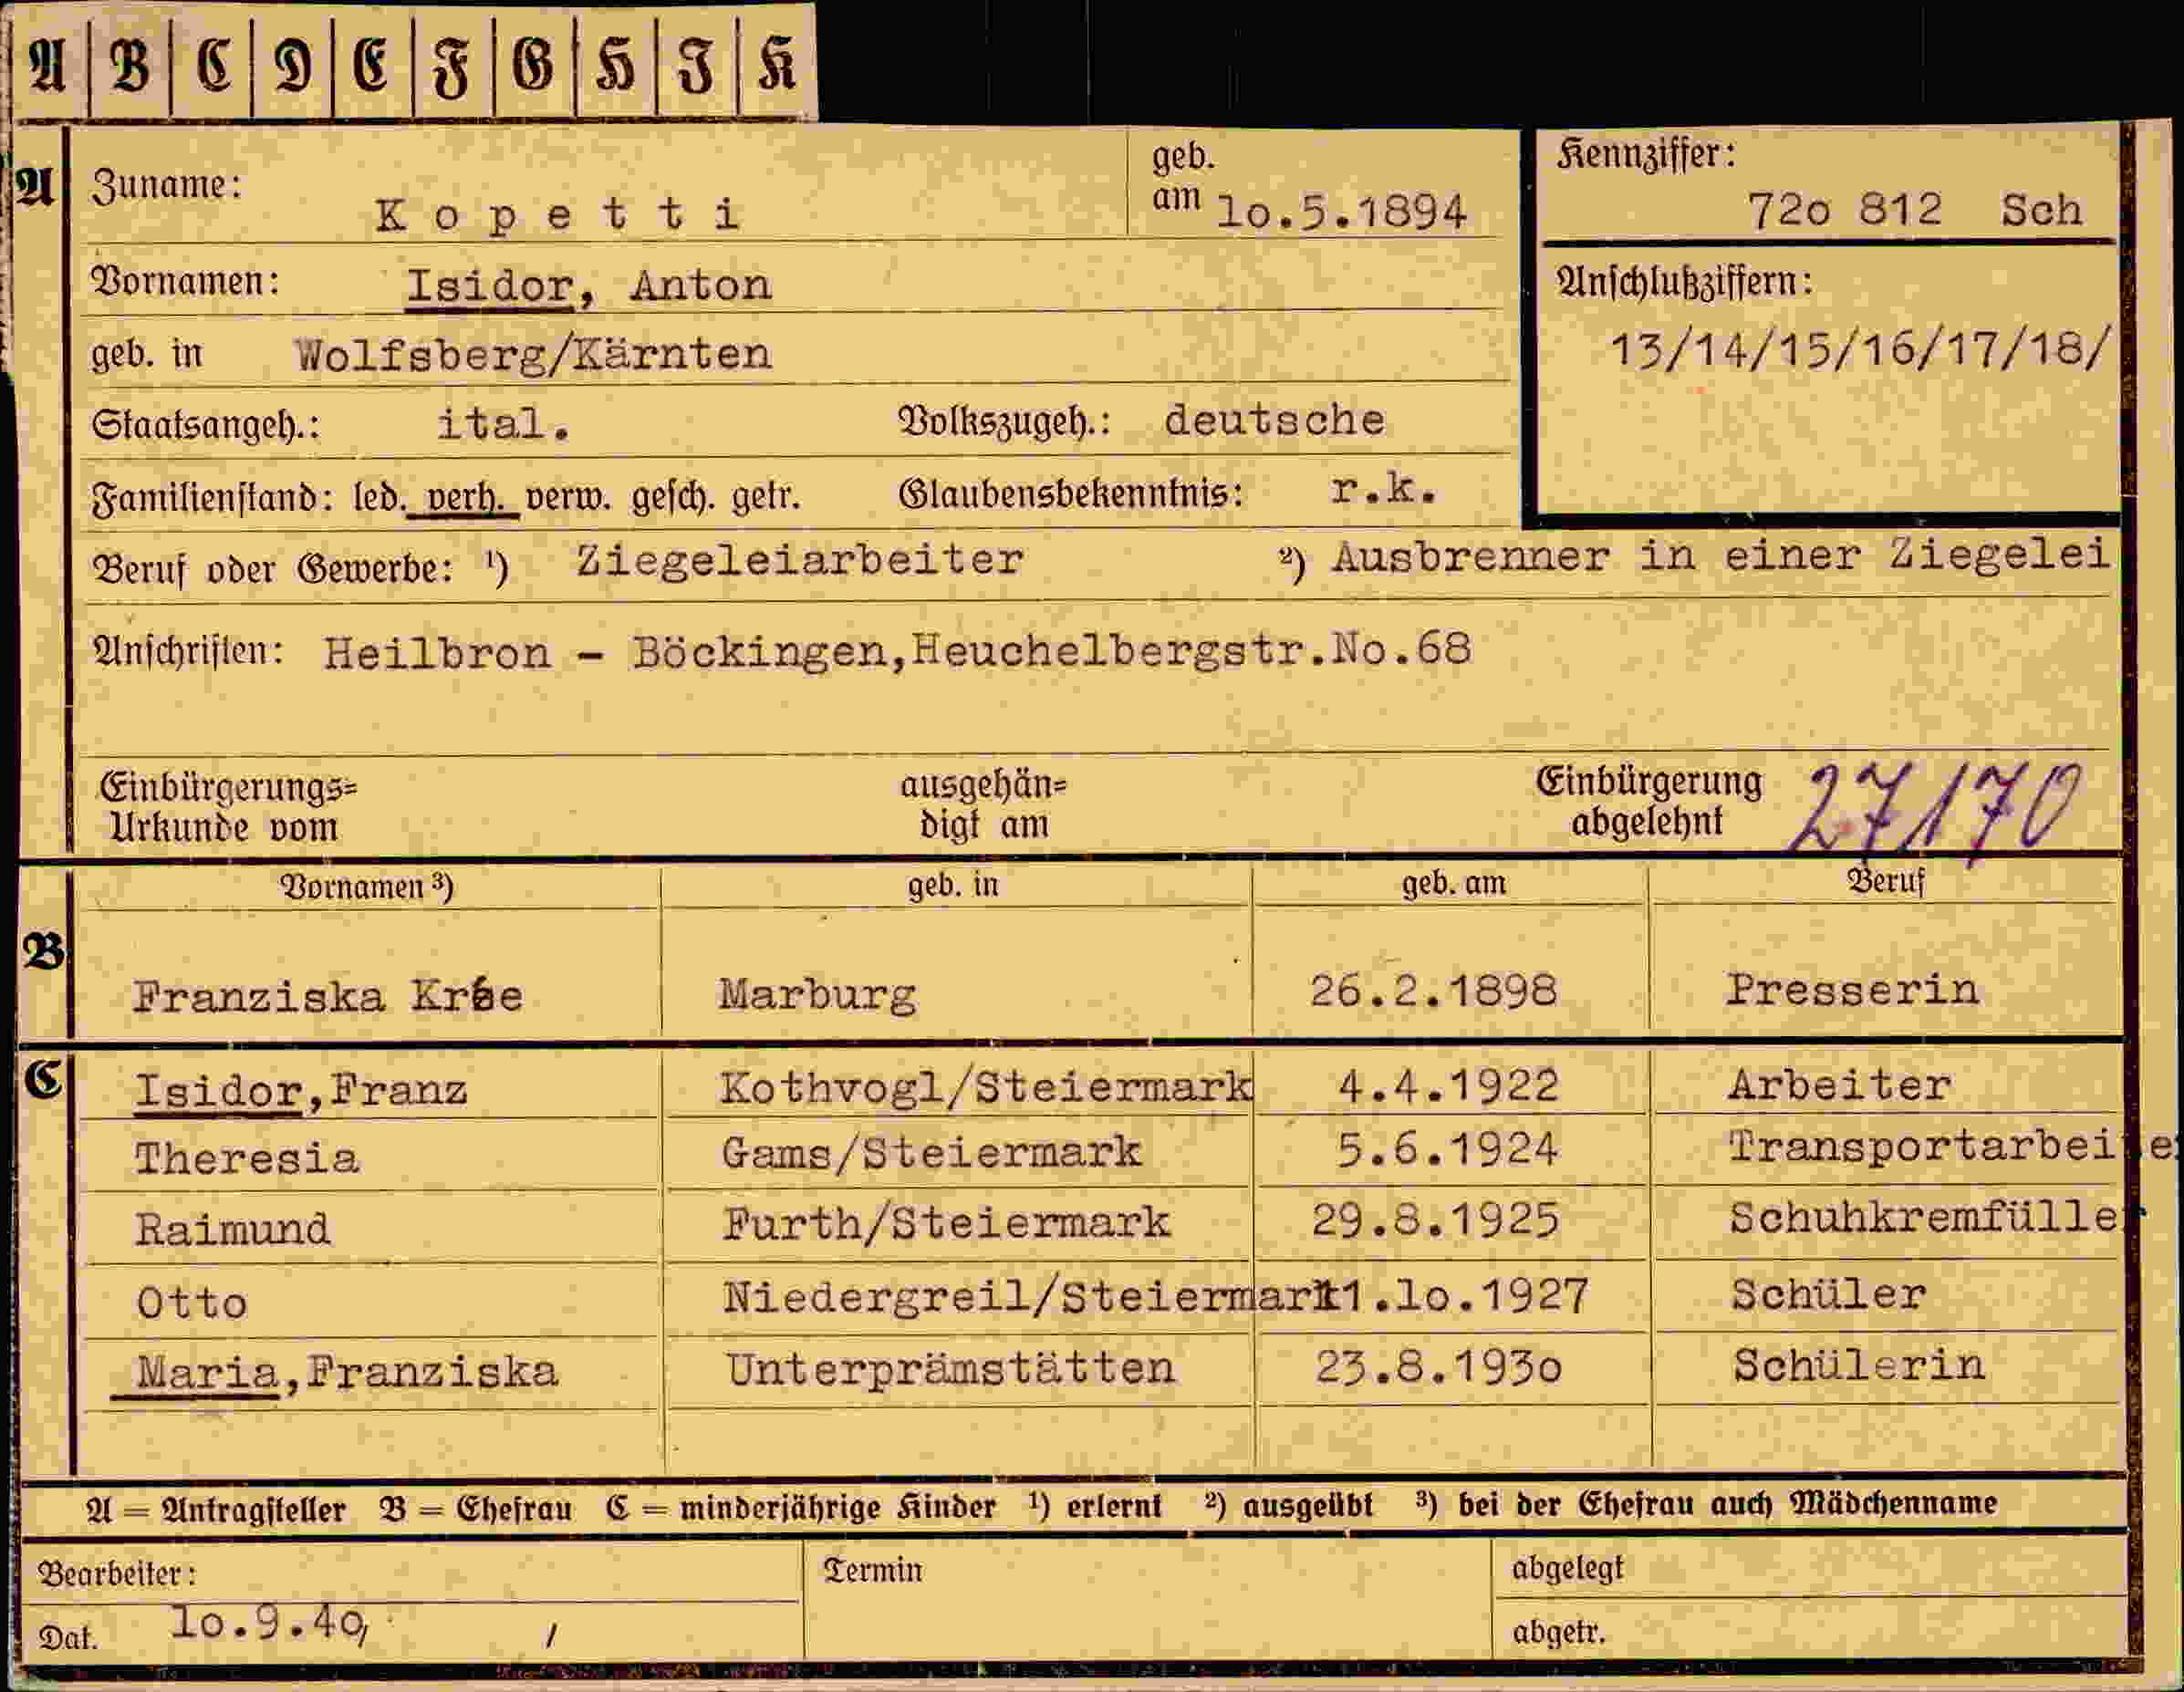 A B C D E F G H I K
A Zuname: Kopetti geb. am 10.5.1894
Kennziffer: 720 812 Sch
Vornamen: Isidor, Anton
Anschlußziffern:
geb. in Wolfsberg/Kärnten
13/14/15/16/17/18/
Staatsangeh.: ital. Volkszugeh.: deutsche
Familienstand: led. verh. verw. gesch. getr. Glaubensbekenntnis: r.k.
Beruf oder Gewerbe: ¹) Ziegeleiarbeiter ²) Ausbrenner in einer Ziegelei
Anschriften: Heilbron - Böckingen,Heuchelbergstr.No.68
Einbürgerungs= ausgehän= Einbürgerung 27170
Urkunde vom digt am abgelehnt
Vornamen ³) geb. in geb. am Beruf
B Franziska Marburg 26.2.1898 Presserin
C Isidor,Franz Kothvogl/Steiermark 4.4.1922 Arbeiter
Theresia Gams/Steiermark 5.6.1924
Raimund Furth/Steiermark 29.8.1925 Schuhkremfüller
Otto Niedergreil/Steiermark 1.10.1927 Schüler
Maria,Franziska Unterprämstätten 23.8.1930 Schülerin
A = Antragsteller B = Ehefrau C = minderjährige Kinder ¹) erlernt ²) ausgeübt ³) bei der Ehefrau auch Mädchenname
Bearbeiter: Termin abgelegt
Dat. 10.9.40, / abgetr.